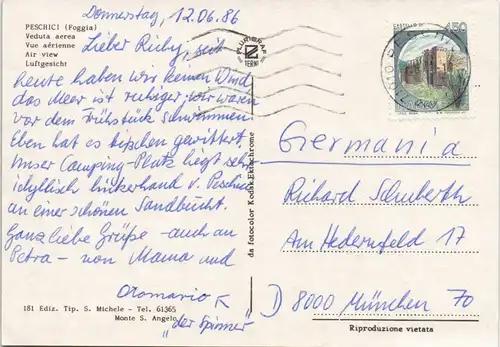 PESCHICI (Foggia)
Veduta aerea
Vue aérienne
Air view
Luftgesicht
Donnerstag, 12.06.86
Lieber Richy, seit
heute haben wir keinen Wind
das Meer ist ruhiger, wir waren
vor dem Frühstück schwimmen.
Eben hat es bisschen gewittert.
Unser Camping-Platz liegt sehr
idyllisch linkerhand v. Peschici
an einer schönen Sandbucht.
Ganz liebe Grüße - auch an
Petra - von Mama und
"der Spinner"
181 Ediz. Tip. S. Michele - Tel. 61365
Monte S. Angelo
PLURIGRAF
TERNI
da fotocolor Kodak Ektachrome
450
Germania
Richard Schuberth
Am Hedernfeld 17
D 8000 München 70
Riproduzione vietata